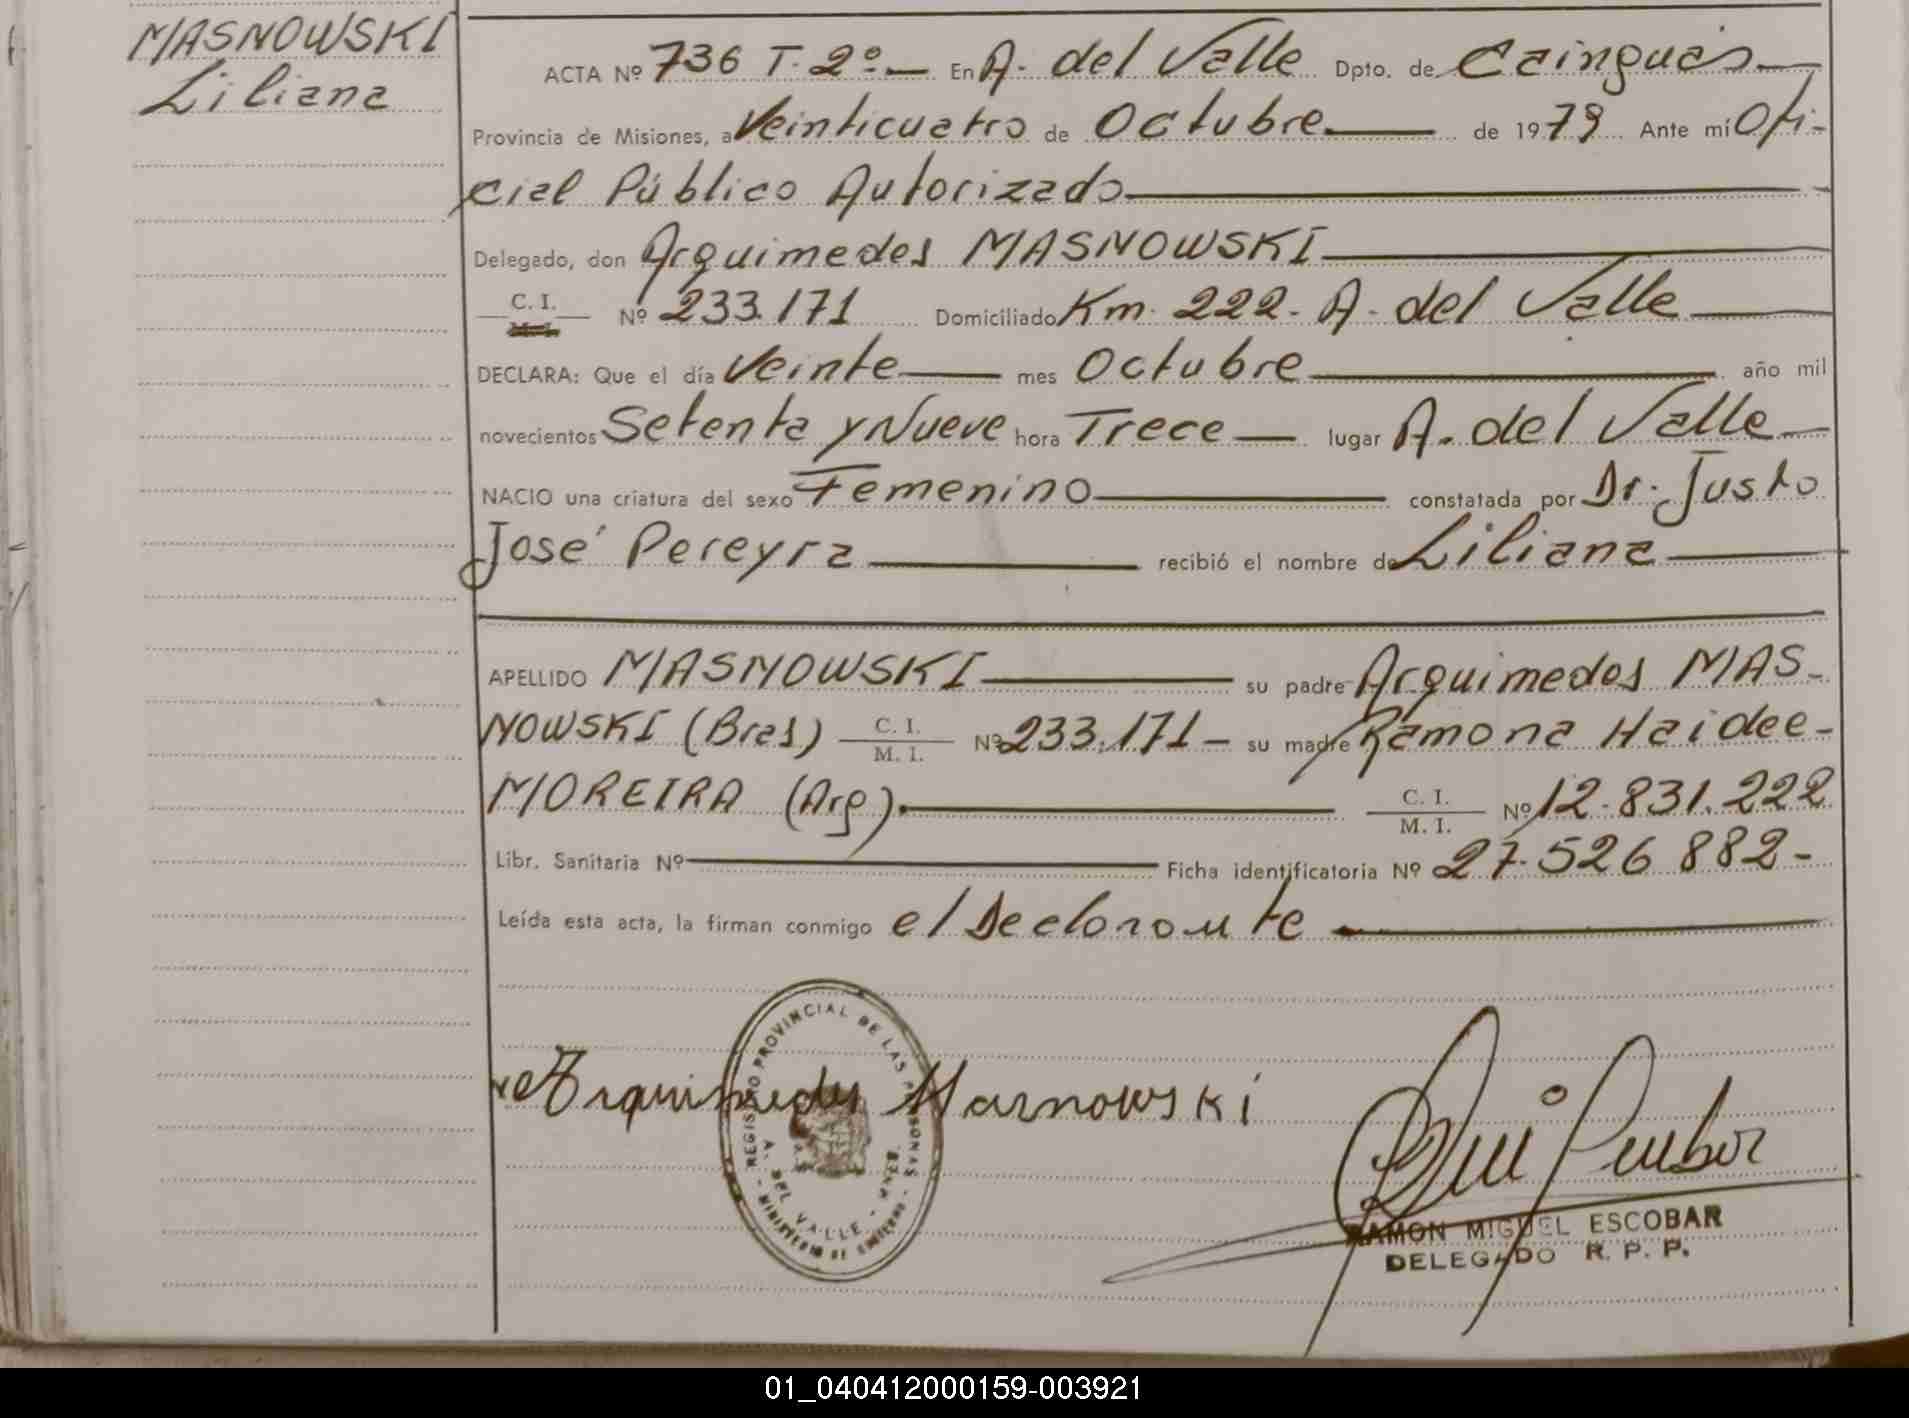 MASNOWSKI
Liliana
ACTA Nº 736 T. 2º.— En A. del Valle Dpto. de Cainguás—
Provincia de Misiones, a Veinticuatro de Octubre de 1979 Ante mí Ofi-
cial Público Autorizado
Delegado, don Arquimedes MASNOWSKI
C. I. Nº 233.171 Domiciliado Km. 222. A. del Valle
DECLARA: Que el día Veinte mes Octubre año mil
novecientos Setenta y Nueve hora Trece lugar A. del Valle
NACIO una criatura del sexo Femenino constatada por Dr. Justo
José Pereyra recibió el nombre de Liliana
APELLIDO MASNOWSKI su padre Arquimedes MAS-
NOWSKI (Bras) C. I. / M. I. Nº 233.171— su madre Ramona Haidee-
MOREIRA (Arg). C. I. / M. I. Nº 12.831.222
Libr. Sanitaria Nº Ficha identificatoria Nº 27.526.882-
Leída esta acta, la firman conmigo el Declarante
REGISTRO PROVINCIAL DE LAS PERSONAS
A. DEL VALLE
MINISTERIO DE GOBIERNO
Arquimedes Masnowski
RAMON MIGUEL ESCOBAR
DELEGADO R. P. P.
01_040412000159-003921